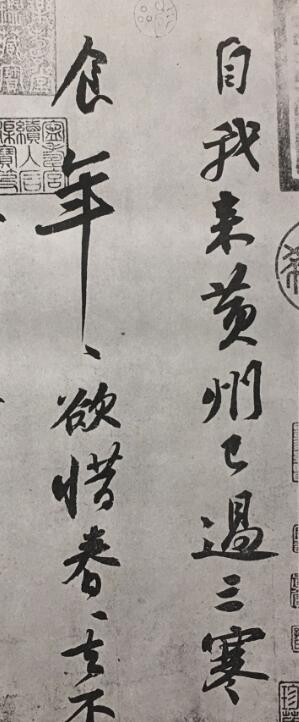 自我来黄州已過三寒
食年々欲惜春々去不